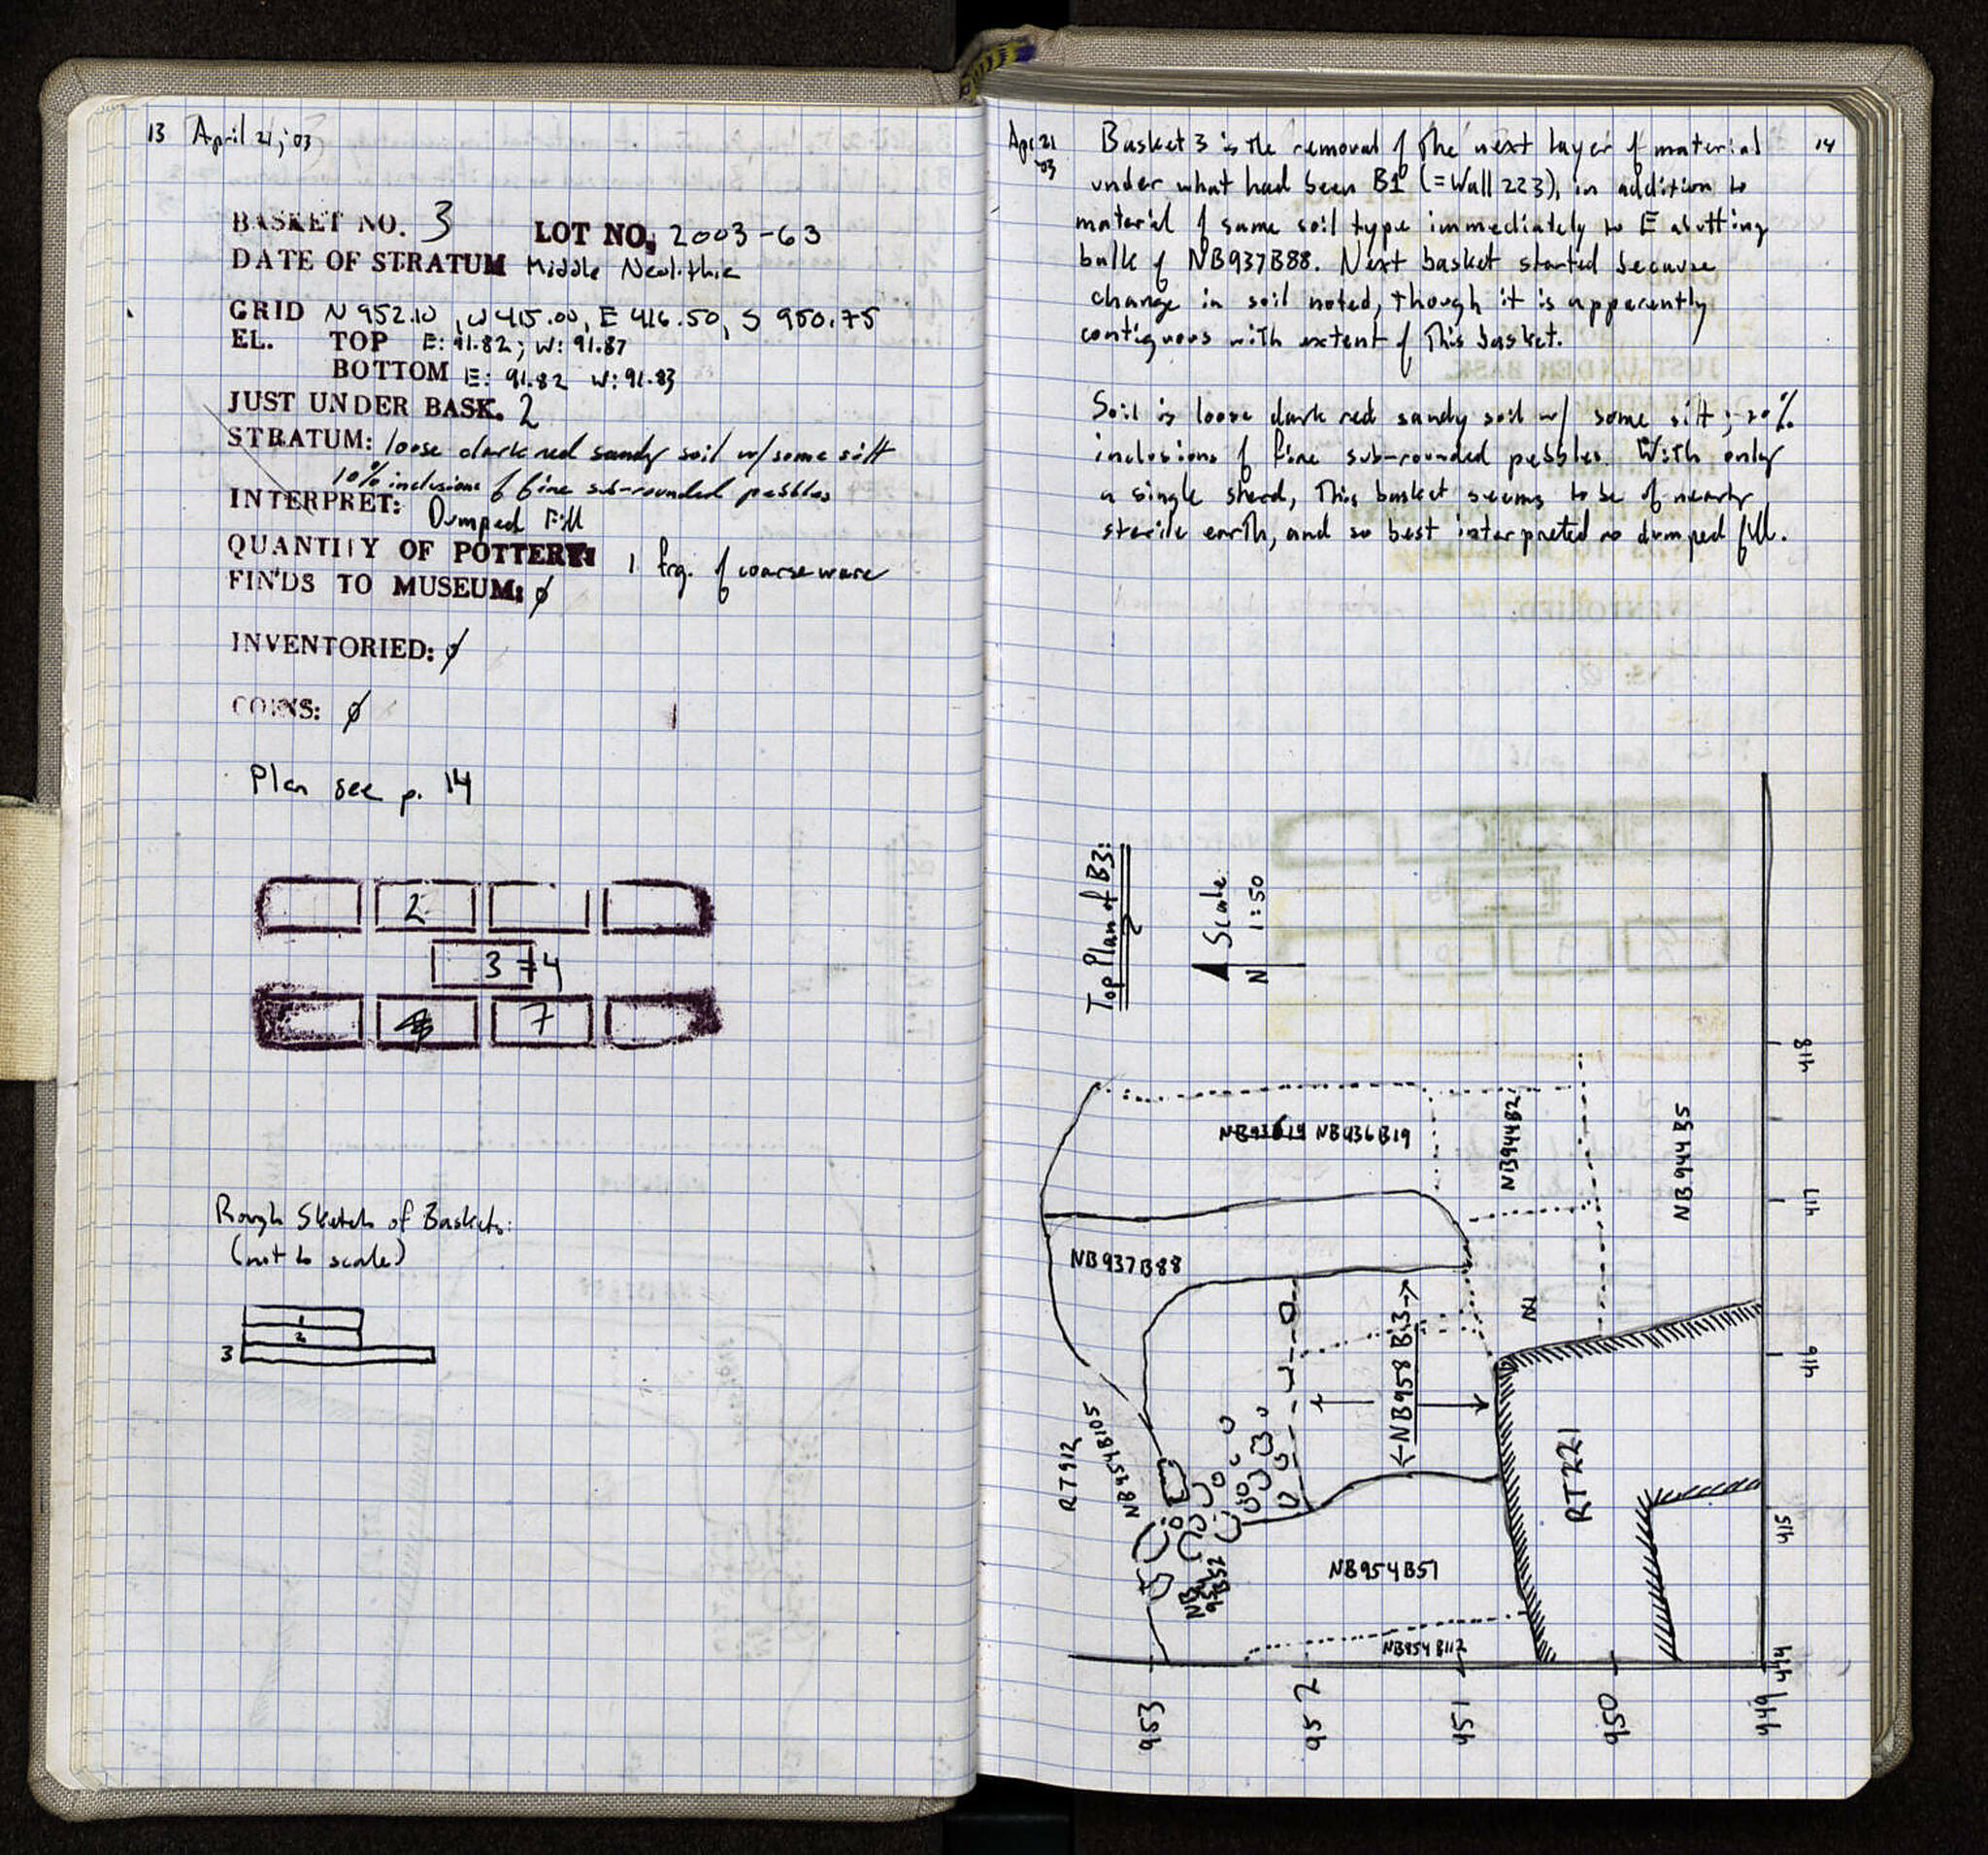 13 April 21, '03
BASKET NO. 3 LOT NO. 2003-63
DATE OF STRATUM Middle Neolithic
GRID N 952.10, W 415.00, E 416.50, S 950.75
EL. TOP E: 91.82; W: 91.87
BOTTOM E: 91.82 W: 91.83
JUST UNDER BASK. 2
STRATUM: loose dark red sandy soil w/ some silt
10% inclusions of fine sub-rounded pebbles
INTERPRET: Dumped Fill
QUANTITY OF POTTERY: 1 frg. of coarse ware
FINDS TO MUSEUM: ∅
INVENTORIED: ∅
COINS: ∅
Plan see p. 14
2
3 = 4
7
Rough Sketch of Baskets:
(not to scale)
1
2
3
Apr 21 '03
14
Basket 3 is the removal of the next layer of material
under what had been B1 (= Wall 223), in addition to
material of same soil type immediately to E abutting
bulk of NB937B88. Next basket started because
change in soil noted, though it is apparently
contiguous with extent of this basket.
Soil is loose dark red sandy soil w/ some silt; 20%
inclusions of fine sub-rounded pebbles. With only
a single sherd, this basket seems to be of nearly
sterile earth, and so best interpreted as dumped fill.
Top Plan of B3:
Scale
1:50
N
NB936B19
NB944B2
NB944B5
NB937B88
←NB958 B3→
RT912
NB954B105
RT221
NB954B52
NB954B51
NB954B112
418
417
416
415
414
953
952
951
950
949